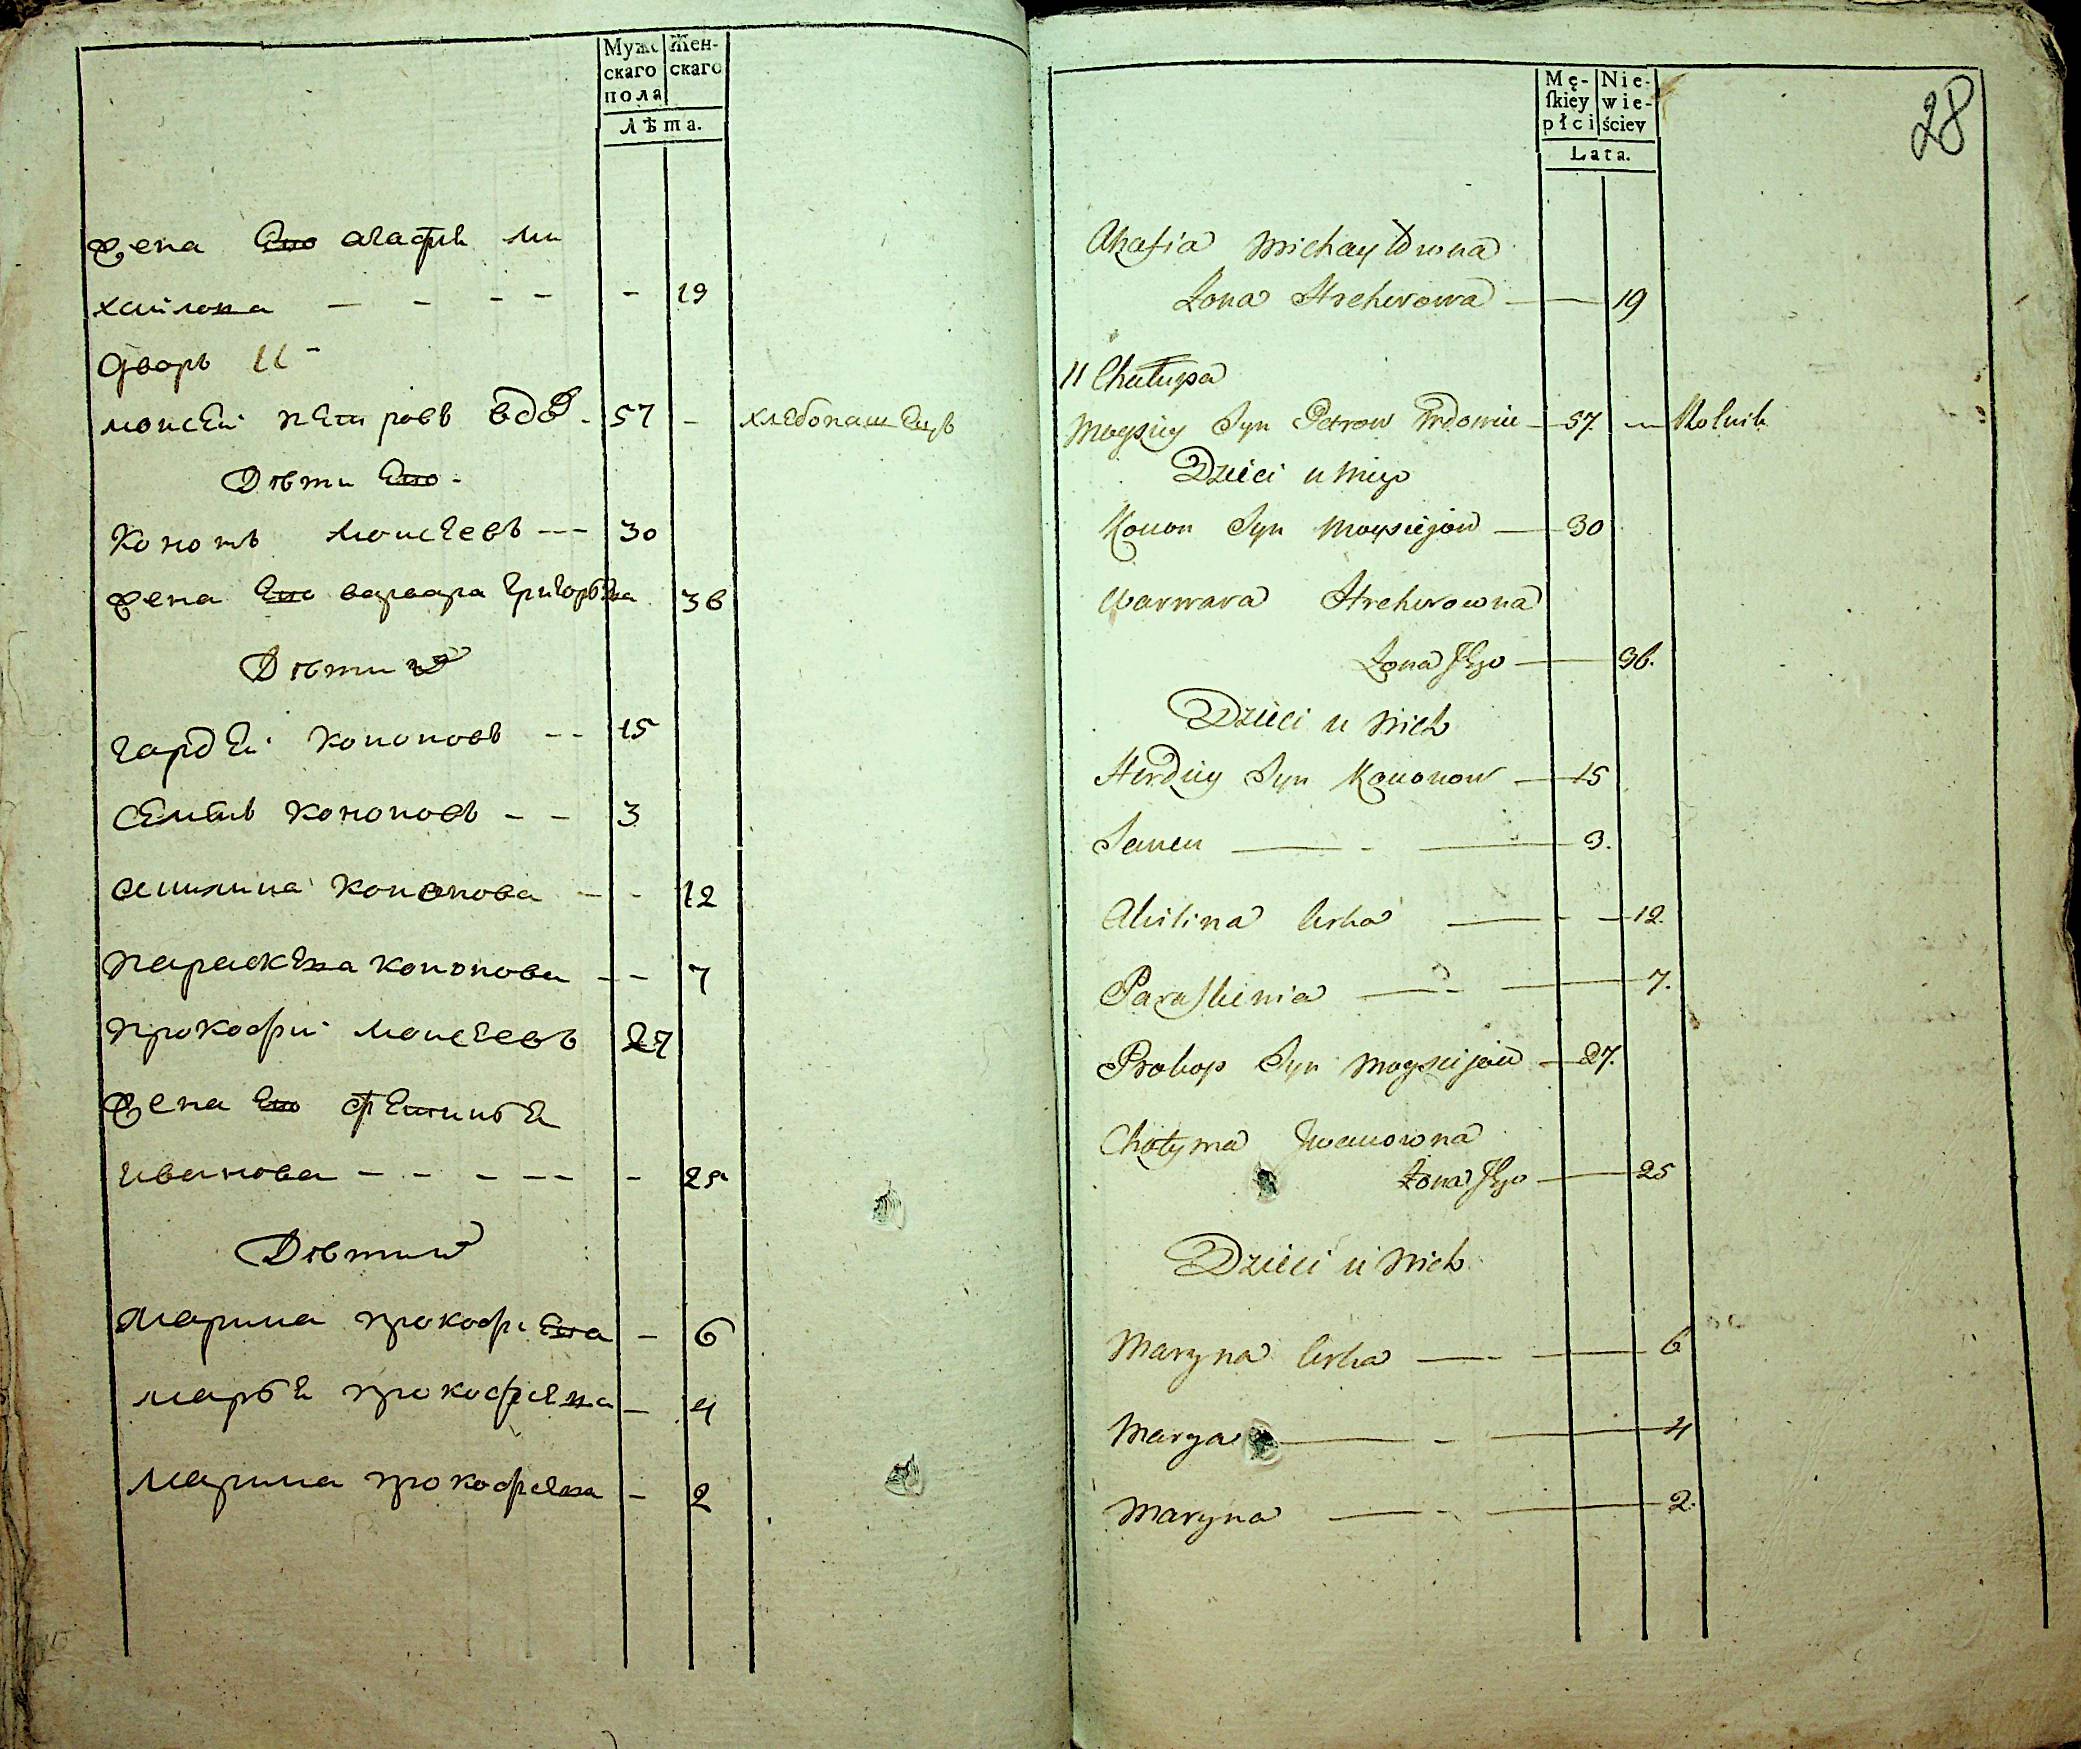 Мужс
скаго
пола
Жен-
скаго
Лѣта.
жена Его агафия ми
хайлова - - - - - 19
дворъ 11
моисей петровъ вдов - 57 - хлебопашецъ
Дѣти Его -
Кононъ Моисеевъ --- 30
жена Его варвара григорьева 36
Дѣти их
гардей кононовъ -- 15
семенъ кононовъ - - 3
акилина кононова - - 12
параскева кононова - - 7
прокофий моисеевъ 27
жена Его
иванова - - - -- - 25
Дѣти их
марина прокофиева - 6
марья прокофиева - 4
марина прокофиева - 2
Mę-
ſkiey
płci
Nie-
wie-
ściey
Lata.
28
Ahafia Michayłowna
Żona Hrehorowa — 19
11 Chałupa
Moysiey Syn Petrow Wdowiec — 57. — Rolnik
Dzieci u niego
Konon Syn Moysiejow — 30
Warwara Hrehorowna
Żona Jego — 36.
Dzieci u nich
Hordiey Syn Kononow — 15
Semen — - — 3.
Akilina Corka — - — 12.
Paraskiewia — - — 7.
Prokop Syn Moysiejow — 27.
Chotyma Iwanowna
Żona Jego — 25
Dzieci u nich
Maryna Corka — - — 6
Marya — - — 4
Maryna — - — 2.